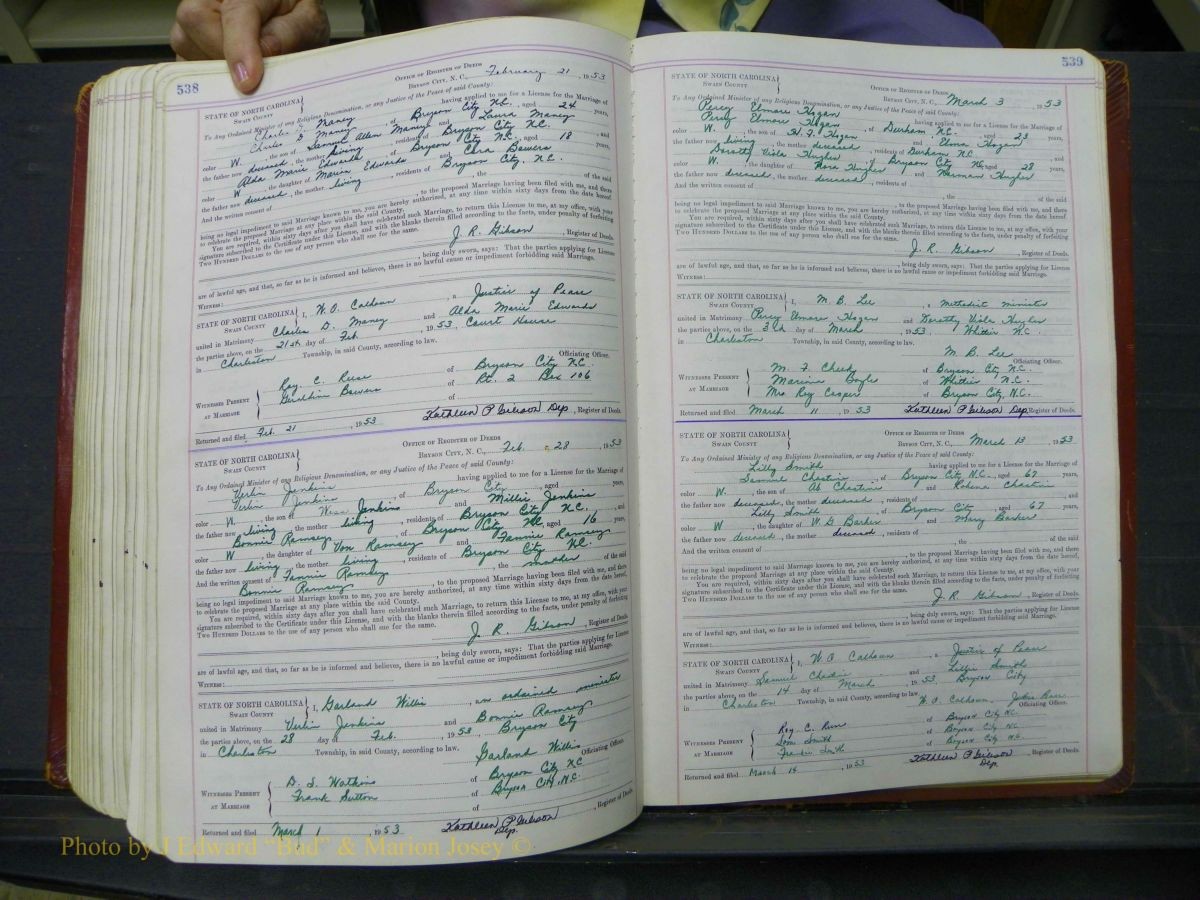 538
OFFICE OF REGISTER OF DEEDS
BRYSON CITY, N. C., February 21, 1953
STATE OF NORTH CAROLINA
SWAIN COUNTY
To Any Ordained Minister of any Religious Denomination, or any Justice of the Peace of said County:
having applied to me for a License for the Marriage of
Charlie D. Maney, of Bryson City N.C., aged 24 years,
color W., the son of Samuel Allen Maney and Laura Maney
the father now deceased, the mother living, residents of Bryson City N.C.
Alda Marie Edwards of Bryson City N.C., aged 18
color W, the daughter of Marion Edwards and Clra Bowers
the father now deceased, the mother living, residents of Bryson City, N.C.
And the written consent of , the of the said
, to the proposed Marriage having been filed with me, and there
being no legal impediment to said Marriage known to me, you are hereby authorized, at any time within sixty days from the date hereof,
to celebrate the proposed Marriage at any place within the said County.
You are required, within sixty days after you shall have celebrated such Marriage, to return this License to me, at my office, with your
signature subscribed to the Certificate under this License, and with the blanks therein filled according to the facts, under penalty of forfeiting
TWO HUNDRED DOLLARS to the use of any person who shall sue for the same.
J. R. Gibson, Register of Deeds.
, being duly sworn, says: That the parties applying for License
are of lawful age, and that, so far as he is informed and believes, there is no lawful cause or impediment forbidding said Marriage.
WITNESS:
STATE OF NORTH CAROLINA
SWAIN COUNTY
I, W. O. Calhoun, a Justice of Peace
united in Matrimony Charles D. Maney and Alda Marie Edwards
the parties above, on the 21st day of Feb. 1953, Court House
in Charleston Township, in said County, according to law.
Officiating Officer.
WITNESSES PRESENT AT MARRIAGE
Roy C. Ruse of Bryson City N.C.
Geraldine Bowers of Rt. 2 Box 106
of
Returned and filed Feb. 21, 1953 Kathleen P Gibson Dep., Register of Deeds.
OFFICE OF REGISTER OF DEEDS
BRYSON CITY, N. C., Feb. 28, 1953
STATE OF NORTH CAROLINA
SWAIN COUNTY
To Any Ordained Minister of any Religious Denomination, or any Justice of the Peace of said County:
Verlin Jenkins having applied to me for a License for the Marriage of
Verlin Jenkins, of Bryson City, aged years,
color W., the son of Jenkins and Millie Jenkins
the father now living, the mother living, residents of Bryson City N.C., and
Bonnie Ramsey of Bryson City N.C., aged 16 years,
color W, the daughter of Von Ramsey and Fannie Ramsey
the father now living, the mother living, residents of Bryson City N.C.
And the written consent of Fannie Ramsey, the mother of the said
Bonnie Ramsey, to the proposed Marriage having been filed with me, and there
being no legal impediment to said Marriage known to me, you are hereby authorized, at any time within sixty days from the date hereof,
to celebrate the proposed Marriage at any place within the said County.
You are required, within sixty days after you shall have celebrated such Marriage, to return this License to me, at my office, with your
signature subscribed to the Certificate under this License, and with the blanks therein filled according to the facts, under penalty of forfeiting
TWO HUNDRED DOLLARS to the use of any person who shall sue for the same.
J. R. Gibson, Register of Deeds.
, being duly sworn, says: That the parties applying for License
are of lawful age, and that, so far as he is informed and believes, there is no lawful cause or impediment forbidding said Marriage.
WITNESS:
STATE OF NORTH CAROLINA
SWAIN COUNTY
I, Garland Willis, an ordained minister
united in Matrimony Verlin Jenkins and Bonnie Ramsey
the parties above, on the 28 day of Feb., 1953, Bryson City
in Charleston Township, in said County, according to law.
Garland Willis Officiating Officer.
WITNESSES PRESENT AT MARRIAGE
D. S. Watkins of Bryson City NC
Frank Sutton of Bryson City, N.C.
of
Returned and filed March 1, 1953 Kathleen P Gibson Dep., Register of Deeds.
539
OFFICE OF REGISTER OF DEEDS
BRYSON CITY, N. C., March 3, 1953
STATE OF NORTH CAROLINA
SWAIN COUNTY
To Any Ordained Minister of any Religious Denomination, or any Justice of the Peace of said County:
Percy Elmore Hogan having applied to me for a License for the Marriage of
Percy Elmore Hogan, of Durham N.C., aged 23 years,
color W., the son of H. F. Hogan and Elma Hogan
the father now living, the mother deceased, residents of Durham N.C., and
Dorothy Viola Hughes of Bryson City N.C., aged 28 years,
color W., the daughter of Nora Hughes and Norman Hughes
the father now deceased, the mother deceased, residents of
And the written consent of , the of the said
, to the proposed Marriage having been filed with me, and there
being no legal impediment to said Marriage known to me, you are hereby authorized, at any time within sixty days from the date hereof,
to celebrate the proposed Marriage at any place within the said County.
You are required, within sixty days after you shall have celebrated such Marriage, to return this License to me, at my office, with your
signature subscribed to the Certificate under this License, and with the blanks therein filled according to the facts, under penalty of forfeiting
TWO HUNDRED DOLLARS to the use of any person who shall sue for the same.
J. R. Gibson, Register of Deeds.
, being duly sworn, says: That the parties applying for License
are of lawful age, and that, so far as he is informed and believes, there is no lawful cause or impediment forbidding said Marriage.
WITNESS:
STATE OF NORTH CAROLINA
SWAIN COUNTY
I, M. B. Lee, a Methodist minister
united in Matrimony Percy Elmore Hogan and Dorothy Viola Hughes
the parties above, on the 3rd day of March, 1953, Whittier N.C.
in Charleston Township, in said County, according to law.
M. B. Lee
Officiating Officer.
WITNESSES PRESENT AT MARRIAGE
M. F. Cheek of Bryson City N.C.
Marina Bogle of Whittier N.C.
Mrs Roy Casper of Bryson City, N.C.
Returned and filed March 11, 1953 Kathleen P Gibson Dep, Register of Deeds.
OFFICE OF REGISTER OF DEEDS
BRYSON CITY, N. C., March 13, 1953
STATE OF NORTH CAROLINA
SWAIN COUNTY
To Any Ordained Minister of any Religious Denomination, or any Justice of the Peace of said County:
Lilly Smith having applied to me for a License for the Marriage of
Samuel Chastine, of Bryson City N.C., aged 67 years,
color W., the son of Ab Chastine and Chastine
the father now deceased, the mother deceased, residents of , and
Lilly Smith of Bryson City, aged 67 years,
color W, the daughter of W. G. Barker and Mary Barker
the father now deceased, the mother deceased, residents of
And the written consent of , the of the said
, to the proposed Marriage having been filed with me, and there
being no legal impediment to said Marriage known to me, you are hereby authorized, at any time within sixty days from the date hereof,
to celebrate the proposed Marriage at any place within the said County.
You are required, within sixty days after you shall have celebrated such Marriage, to return this License to me, at my office, with your
signature subscribed to the Certificate under this License, and with the blanks therein filled according to the facts, under penalty of forfeiting
TWO HUNDRED DOLLARS to the use of any person who shall sue for the same.
J. R. Gibson, Register of Deeds.
being duly sworn, says: That the parties applying for License
are of lawful age, and that, so far as he is informed and believes, there is no lawful cause or impediment forbidding said Marriage.
WITNESS:
STATE OF NORTH CAROLINA
SWAIN COUNTY
I, W. O. Calhoun, a Justice of Peace
united in Matrimony Samuel and Lillie Smith
the parties above, on the 14 day of March, 1953, Bryson City
in Charleston Township, in said County, according to law.
W. O. Calhoun, Justice Peace
Officiating Officer.
WITNESSES PRESENT AT MARRIAGE
Roy C. Ruse of Bryson City N.C.
Smith of Bryson City N.C.
Smith of Bryson City N.C.
Returned and filed March 14, 1953 Kathleen P Gibson Dep., Register of Deeds.
Photo by J Edward "Bud" & Marion Josey ©